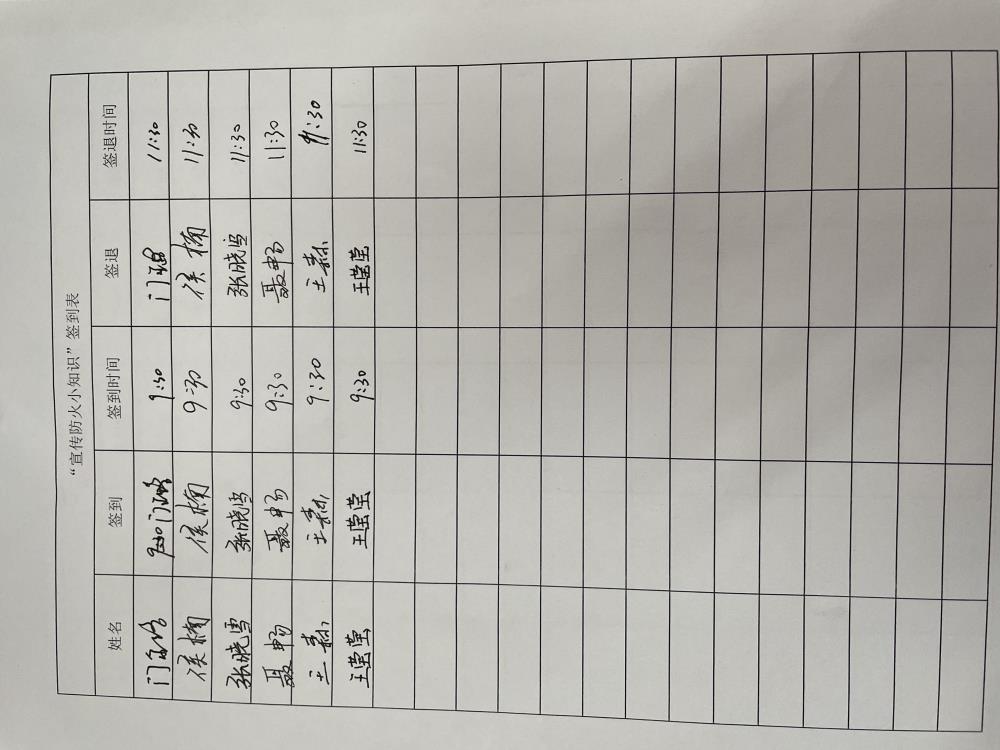 “宣传防火小知识”签到表
姓名 签到 签到时间 签退 签退时间
门 门 9:30 门 11:30
侯楠 侯楠 9:30 侯楠 11:30
张晓雪 张晓雪 9:30 张晓雪 11:30
聂畅 聂畅 9:30 聂畅 11:30
王森 王森 9:30 王森 11:30
王莹莹 王莹莹 9:30 王莹莹 11:30